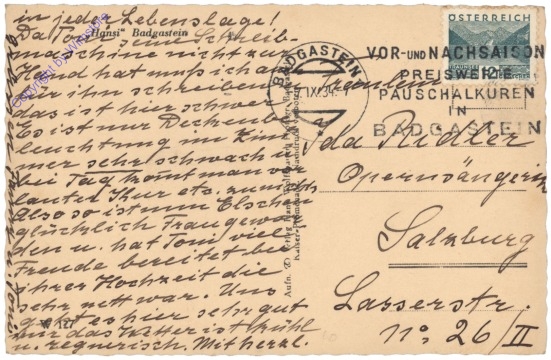 in jeder Lebenslage!
"Hansi" Badgastein
Da Toni seine Schreib-
maschine nicht zur
Hand hat muß ich
für ihn schreiben
das ist hier schwer
Es ist nur Deckenbe
leuchtung im Zim
mer sehr schwach u
bei Tag kommt man vor
lauter Kur etc. zu nichts
Also so ist nun Elschen
glücklich Frau gewor
den u. hat Toni viel
Freude bereitet bei
ihrer Hochzeit die
sehr nett war. Uns
geht es hier sehr gut
nur das Wetter ist kühl
u regnerisch, Mit herzl.
W 127
Copyright by
BADGASTEIN
IX 34
VOR- UND NACHSAISON
PREISWERTE
PAUSCHALKUREN
IN
BADGASTEIN
ÖSTERREICH
12
Fräulein
Ida Riedler
Opernsängerin
Salzburg
Lasserstr.
No 26/II